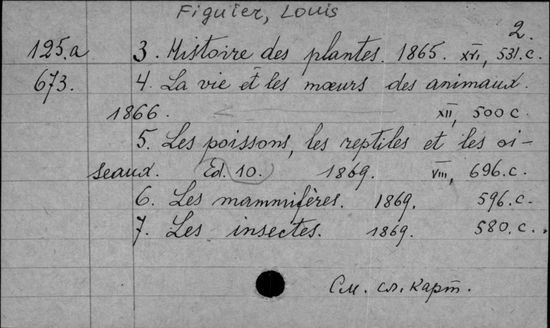 Figuier, Louis
2.
125.a 3. Histoire des plantes. 1865. XVI, 531.c.
673. 4. La vie et les mœurs des animaux.
1866. XII, 500 c.
5. Les poissons, les reptiles et les oi-
seaux. Ed. 10. 1869. VIII, 696.c.
6. Les mammifères. 1869. 596.c.
7. Les insectes. 1869. 580.c.
См. сл. карт.